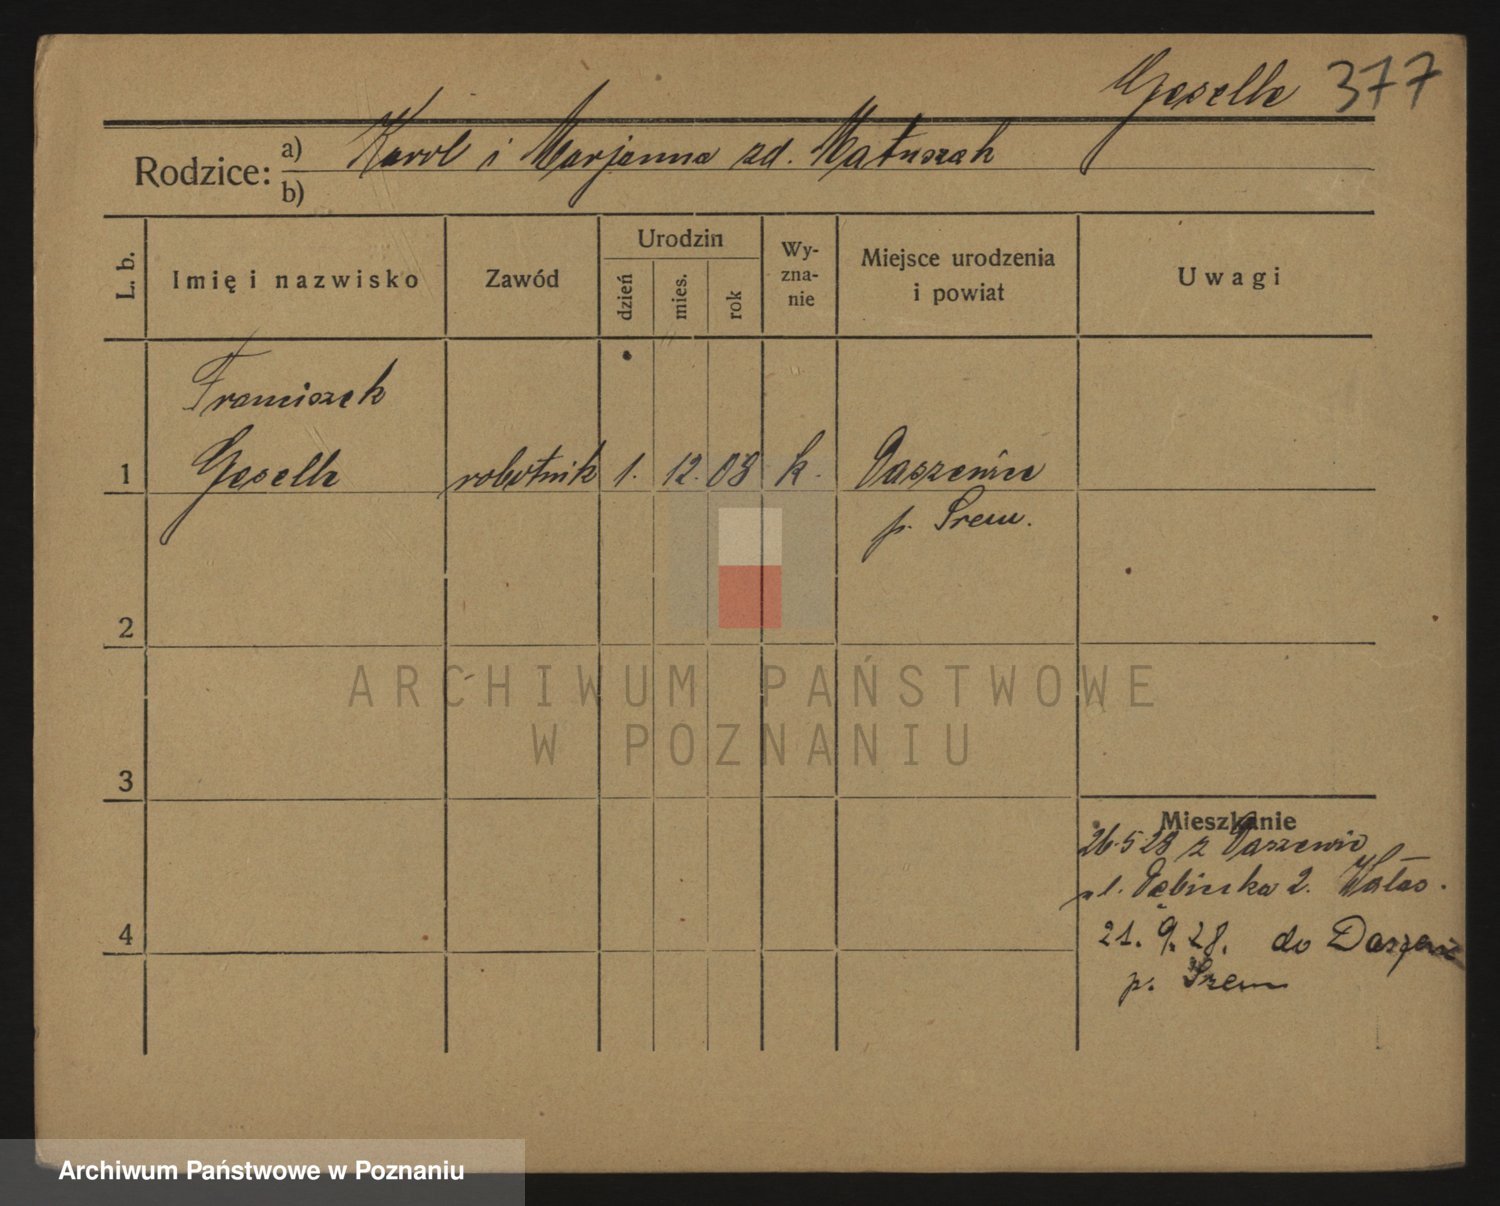 Geselle 377
Rodzice: a) Karol i Marjanna zd. Matuszak
b)
L. b. Imię i nazwisko Zawód Urodzin dzień mies. rok Wy-zna-nie Miejsce urodzenia i powiat Uwagi
Franciszek
1 Geselle robotnik 1. 12. 08 k. Daszewice
p. Śrem.
2
ARCHIWUM PAŃSTWOWE
W POZNANIU
3
Mieszkanie
26.5.28 z Daszewic
ul. Dębińska 2.
4
21. 9. 28. do Daszewic
p. Śrem
Archiwum Państwowe w Poznaniu